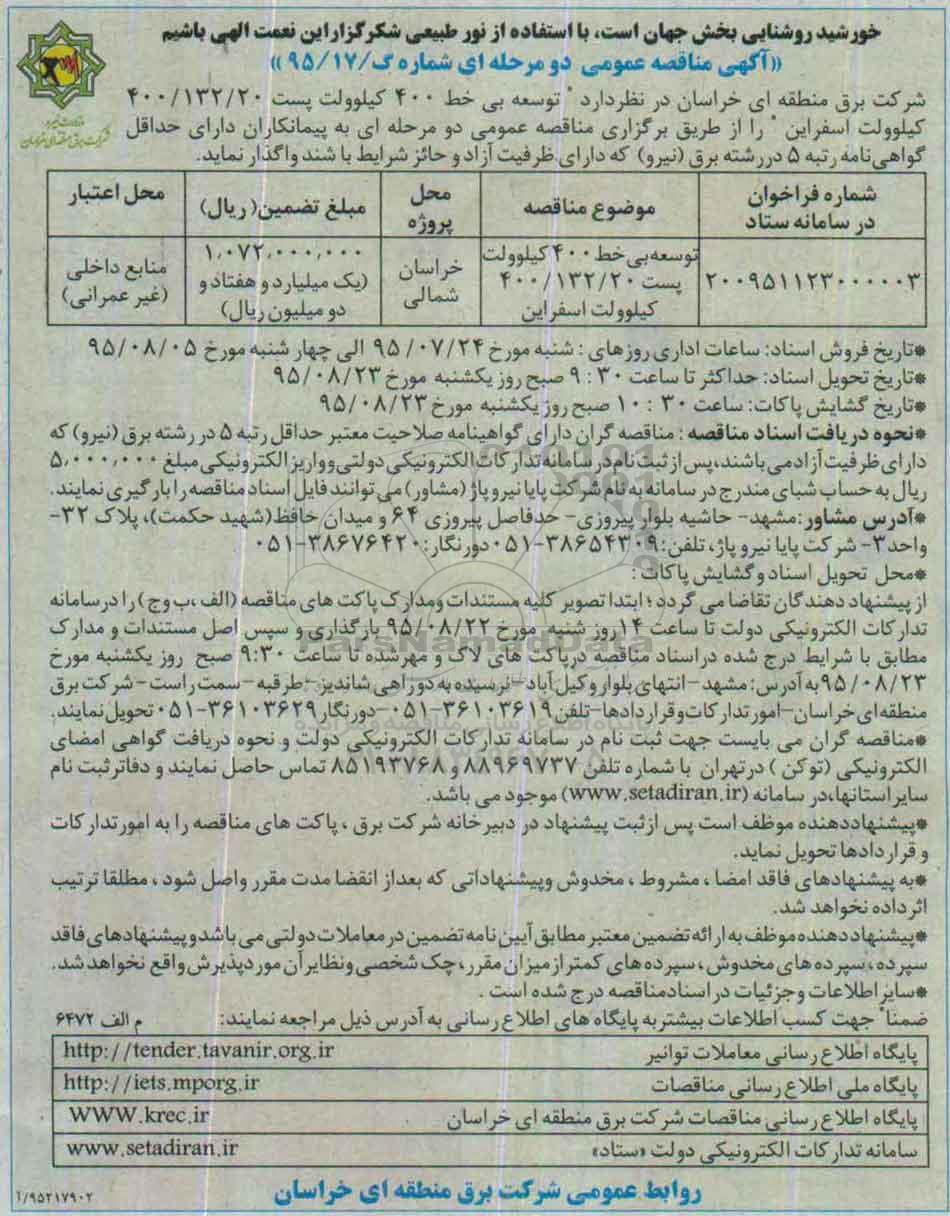 خورشید روشنایی بخش جهان است، با استفاده از نور طبیعی شکرگزار این نعمت الهی باشیم
«آگهی مناقصه عمومی دو مرحله ای شماره گ/۹۵/۱۷»
شرکت برق منطقه ای خراسان در نظر دارد " توسعه بی خط ۴۰۰ کیلوولت پست ۴۰۰/۱۳۲/۲۰
کیلوولت اسفراین " را از طریق برگزاری مناقصه عمومی دو مرحله ای به پیمانکاران دارای حداقل
گواهی‌نامه رتبه ۵ در رشته برق (نیرو) که دارای ظرفیت آزاد و حائز شرایط با شند واگذار نماید.
شرکت برق منطقه‌ای خراسان
شماره فراخوان در سامانه ستاد
موضوع مناقصه
محل پروژه
مبلغ تضمین( ریال)
محل اعتبار
۲۰۰۹۵۱۱۲۳۰۰۰۰۰۳
توسعه بی خط ۴۰۰ کیلوولت
پست ۴۰۰/۱۳۲/۲۰
کیلوولت اسفراین
خراسان شمالی
۱،۰۷۲،۰۰۰،۰۰۰
(یک میلیارد و هفتاد و
دو میلیون ریال)
منابع داخلی
(غیر عمرانی)
*تاریخ فروش اسناد: ساعات اداری روزهای : شنبه مورخ ۹۵/۰۷/۲۴ الی چهار شنبه مورخ ۹۵/۰۸/۰۵
*تاریخ تحویل اسناد: حداکثر تا ساعت ۹:۳۰ صبح روز یکشنبه مورخ ۹۵/۰۸/۲۳
*تاریخ گشایش پاکات: ساعت ۱۰:۳۰ صبح روز یکشنبه مورخ ۹۵/۰۸/۲۳
*نحوه دریافت اسناد مناقصه : مناقصه گران دارای گواهینامه صلاحیت معتبر حداقل رتبه ۵ در رشته برق (نیرو) که
دارای ظرفیت آزاد می باشند، پس از ثبت نام در سامانه تدارکات الکترونیکی دولتی و واریز الکترونیکی مبلغ ۵،۰۰۰،۰۰۰
ریال به حساب شبای مندرج در سامانه به نام شرکت پایا نیرو پاژ (مشاور) می توانند فایل اسناد مناقصه را بارگیری نمایند.
*آدرس مشاور :مشهد- حاشیه بلوار پیروزی- حدفاصل پیروزی ۶۴ و میدان حافظ(شهید حکمت)، پلاک ۳۲-
واحد ۳- شرکت پایا نیرو پاژ، تلفن: ۳۸۶۵۴۳۰۹-۰۵۱ دورنگار: ۳۸۶۷۶۴۲۰-۰۵۱
*محل تحویل اسناد و گشایش پاکات :
از پیشنهاد دهندگان تقاضا می گردد ؛ ابتدا تصویر کلیه مستندات ومدارک پاکت های مناقصه (الف ،ب و ج) را در سامانه
تدارکات الکترونیکی دولت تا ساعت ۱۴ روز شنبه مورخ ۹۵/۰۸/۲۲ بارگذاری و سپس اصل مستندات و مدارک
مطابق با شرایط درج شده در اسناد مناقصه در پاکت های لاک و مهر شده تا ساعت ۹:۳۰ صبح روز یکشنبه مورخ
۹۵/۰۸/۲۳ به آدرس: مشهد -انتهای بلوار وکیل آباد -نرسیده به دو راهی شاندیز -طرقبه -سمت راست- شرکت برق
منطقه ای خراسان-امور تدارکات و قراردادها-تلفن ۳۶۱۰۳۶۱۹-۰۵۱-دورنگار ۳۶۱۰۳۶۲۹-۰۵۱ تحویل نمایند.
*مناقصه گران می بایست جهت ثبت نام در سامانه تدارکات الکترونیکی دولت و نحوه دریافت گواهی امضای
الکترونیکی (توکن ) در تهران با شماره تلفن ۸۸۹۶۹۷۳۷ و ۸۵۱۹۳۷۶۸ تماس حاصل نمایند و دفاتر ثبت نام
سایر استانها، در سامانه (www.setadiran.ir) موجود می باشد.
*پیشنهاددهنده موظف است پس از ثبت پیشنهاد در دبیرخانه شرکت برق ، پاکت های مناقصه را به امور تدارکات
و قراردادها تحویل نماید.
*به پیشنهادهای فاقد امضا ، مشروط ، مخدوش وپیشنهاداتی که بعداز انقضا مدت مقرر واصل شود ، مطلقا ترتیب
اثر داده نخواهد شد.
*پیشنهاد دهنده موظف به ارائه تضمین معتبر مطابق آیین نامه تضمین در معاملات دولتی می باشد و پیشنهادهای فاقد
سپرده ، سپرده های مخدوش ، سپرده های کمتر از میزان مقرر، چک شخصی ونظایر آن مورد پذیرش واقع نخواهد شد.
*سایر اطلاعات و جزئیات در اسناد مناقصه درج شده است .
ضمناً جهت کسب اطلاعات بیشتر به پایگاه های اطلاع رسانی به آدرس ذیل مراجعه نمایند: م الف ۶۴۷۲
پایگاه اطلاع رسانی معاملات توانیر http://tender.tavanir.org.ir
پایگاه ملی اطلاع رسانی مناقصات http://iets.mporg.ir
پایگاه اطلاع رسانی مناقصات شرکت برق منطقه ای خراسان WWW.krec.ir
سامانه تدارکات الکترونیکی دولت «ستاد» www.setadiran.ir
روابط عمومی شرکت برق منطقه ای خراسان
۹۵۲۱۷۹۰۲/آ
ParsNamadData